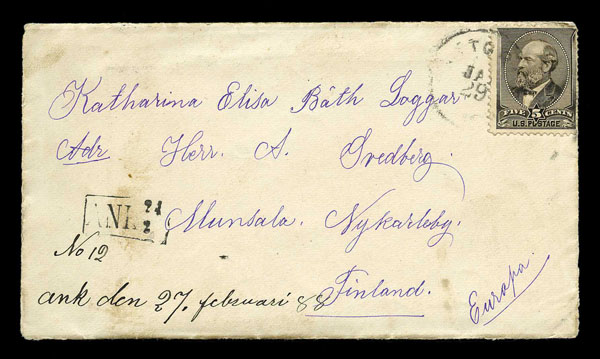 TO
JA
29
FIVE 5 CENTS
U.S. POSTAGE
Katharina Elisa Båth Loggar
Adr Herr. A. Svedberg.
ANK 24
2
Munsala. Nykarleby.
No 12
Finland.
ank den 27. februari 88
Europa.